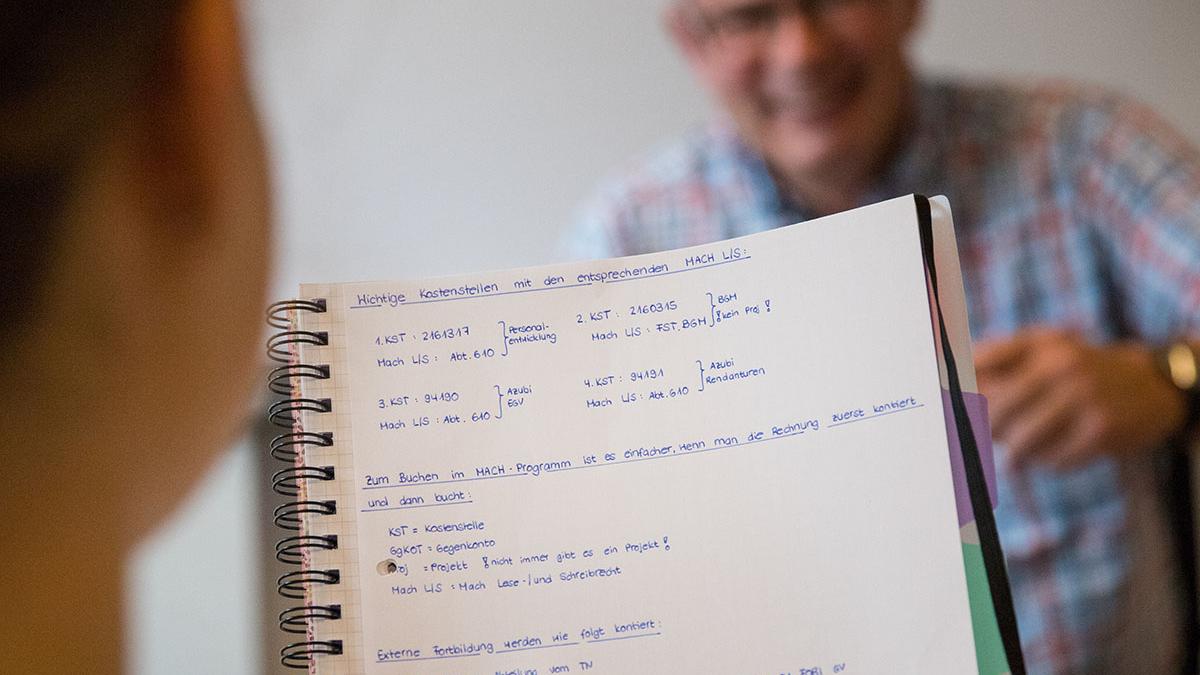 Wichtige Kostenstellen mit den entsprechenden MACH L/S:
1. KST : 2161317 } Personal-
entwicklung
Mach L/S : Abt. 610
2. KST : 2160315 } BGM
Mach L/S : FST. BGM ! kein Proj !
3. KST : 94190 } Azubi
EGV
Mach L/S : Abt. 610
4. KST : 94191 } Azubi
Rendanturen
Mach L/S : Abt. 610
Zum Buchen im MACH-Programm ist es einfacher, wenn man die Rechnung zuerst kontiert
und dann bucht:
KST = Kostenstelle
GgKOT = Gegenkonto
= Projekt ! nicht immer gibt es ein Projekt !
Mach L/S = Mach Lese-/und Schreibrecht
Externe Fortbildung werden wie folgt kontiert:
vom TN